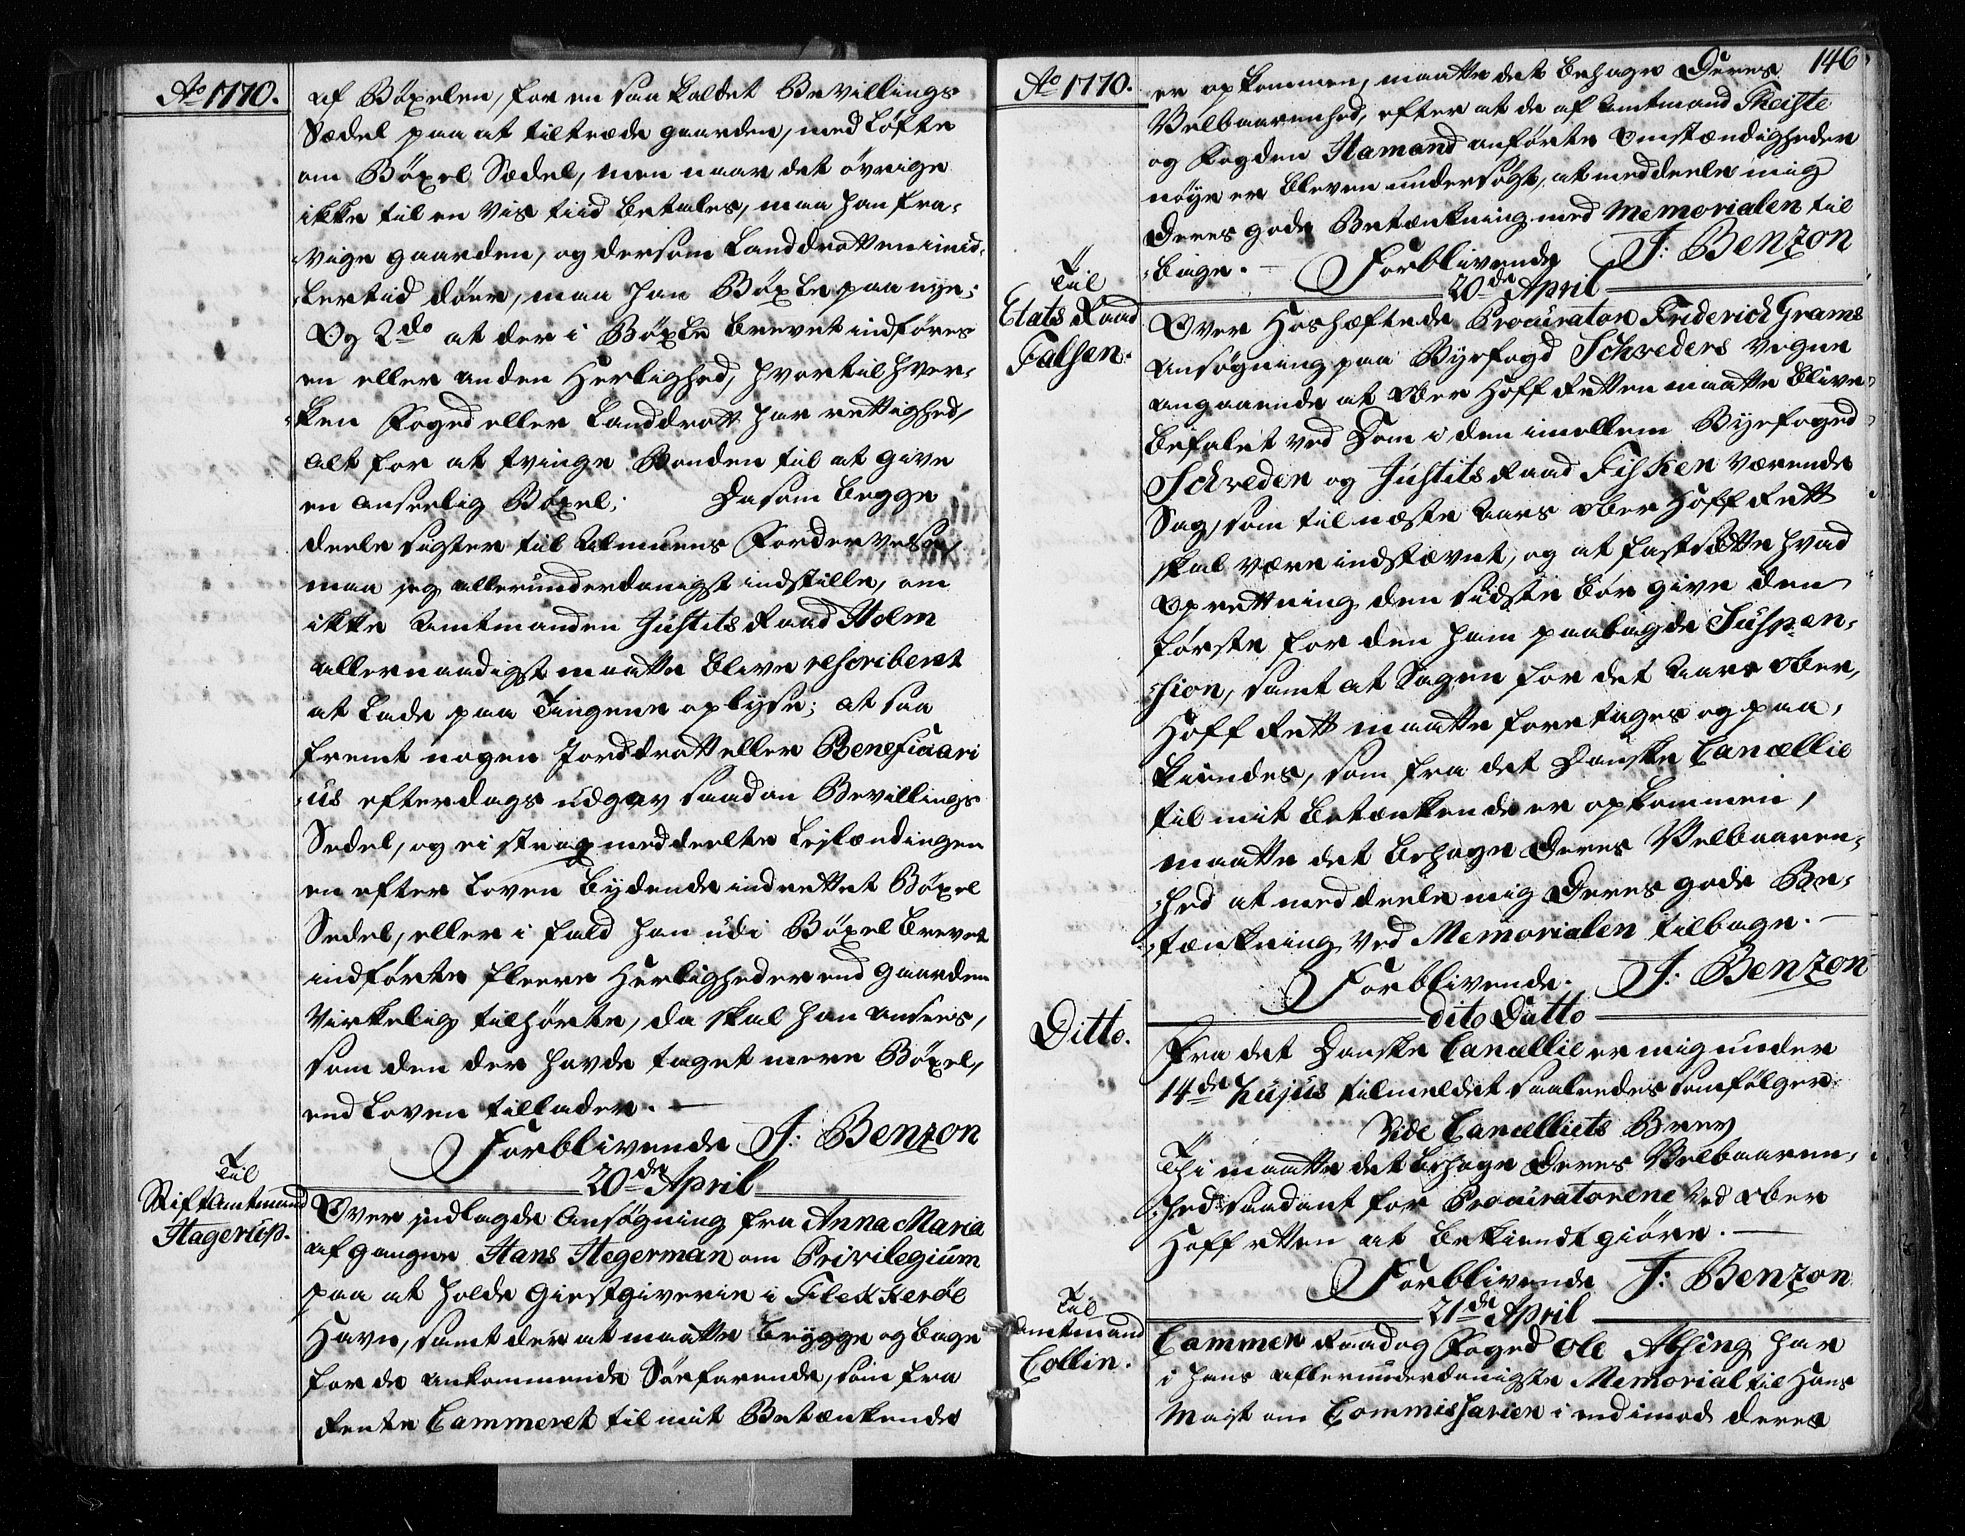 Ao 1770.
af Bøxelen, for en saa kaldet Bevillings
Sædel paa at tiltræde gaarden, med Løfte
om Bøxel Sædel, men naar det øvrige
ikke til en vis tiid betales, maa han fra-
vige gaarden, og dersom Landdrotten imid-
lertid døer, maa han Bøxle paa nye;
Og 2do at der i Bøxle brevet indføres
en eller anden Herlighed, hvortil hver-
ken Foged eller Landdrott har rettighed,
alt for at tvinge Bonden til at give
en anseelig Bøxel; Da som begge
deele sigter til Almuens Fordervelse,
maa jeg allerunderdanigst indstille, om
ikke Amtmanden Justits Raad Holm
allernaadigst maatte blive rescriberet
at lade paa Tingene oplyse; at saa
fremt nogen Jorddrott eller Beneficiari
us efterdags udgav saadan Bevillings
Sedel, og ei strax meddeelte Leilændingen
en efter Loven lydende indrettet Bøxel
Sedel, eller i fald han udi Bøxel brevet
indførte fleere Herligheder end gaarden
virkelig tilhørte, da skal han ansees,
som den der havde taget mere Bøxel,
end Loven tillader. —
Forblivende J: Benzon
20de April
Til
Stiftamtmand
Hagerup.
Over indlagde Ansøgning fra Anna Maria
afgangne Hans Hegerman om Privilegium
paa at holde Giestgiverie i Flekkerøe
Havn, samt der at maatte brygge og bage
for de ankommende Søefarende, som fra
Rente Cammeret til mit Betænkende
Ao 1770.
146
er opkommen, maatte det behage Deres
Velbaarenhed, efter at de af Amtmand Theiste
og Fogden Hamand anførte Omstændigheder
nøye er bleven undersøgt, at meddeele mig
Deres gode Betænkning med Memorialen til
bage. — Forblivende J: Benzon
20de April
Til
Etats Raad
Falsen.
Over Hoshæftede Procurator Friderich Grams
Ansøgning paa Byefogd Schreders vegne
angaaende at Ober Hoff Retten maatte blive
befalet ved Dom i den imellem Byefoged
Schreder og Justits Raad Fisker værende
Sag, som til næste Aars Ober Hoff Rett
skal være indstævnt, og at fastsætte hvad
Oprettning den sidste bør give den
første for den ham paalagde Suspen-
sion, samt at Sagen for det Aars Ober
Hoff Rett maatte foretages og paa-
kiendes, som fra det Danske Cancellie
til mit betænkende er opkommen,
maatte det behage Deres Velbaaren-
hed at meddeele mig Deres gode Be-
tænkning ved Memorialen tilbage. —
Forblivende. J: Benzon
dito Datto
Ditto.
Fra det Danske Cancellie er mig under
14de hujus tilmeldet saaledes som følger
Vide Cancelliets Brev
Thi maatte det behage Deres Velbaaren-
hed saadant for Procuratorene ved Ober
Hoffretten at bekiendtgiøre. —
Forblivende J: Benzon
21de April
Til
Amtmand
Collin.
Cammer Raad og Foged Ole Absing har
i hans allerunderdanigste Memorial til Hans
Mayst om Commissarier i endimod deres